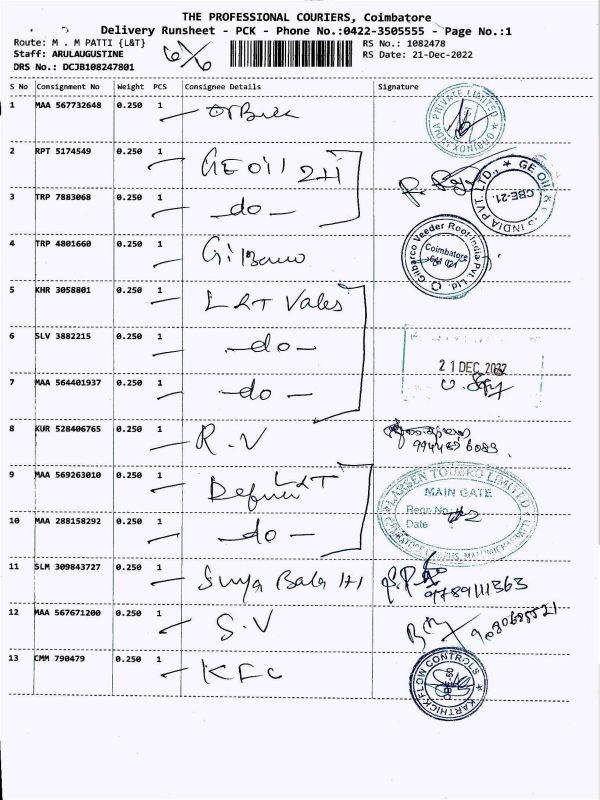 THE PROFESSIONAL COURIERS, Coimbatore
Delivery Runsheet - PCK - Phone No.:0422-3505555 - Page No.:1
Route: M . M PATTI {L&T} RS No.: 1082478
Staff: ARULAUGUSTINE RS Date: 21-Dec-2022
DRS No.: DCJB108247801
S No Consignment No Weight PCS Consignee Details Signature
1 MAA 567732648 0.250 1
2 RPT 5174549 0.250 1 GE Oil
3 TRP 7883068 0.250 1 - do -
4 TRP 4801660 0.250 1
5 KHR 3058801 0.250 1 L&T Vales
6 SLV 3882215 0.250 1 - do -
21 DEC 2022
7 MAA 564401937 0.250 1 - do -
8 KUR 528406765 0.250 1 R.V
9 MAA 569263010 0.250 1 L&T
LARSEN TOUBRO LIMITED
MAIN GATE
Regn.No
Date
10 MAA 288158292 0.250 1 - do -
11 SLM 309843727 0.250 1 Surya Bala 9789111363
12 MAA 567671200 0.250 1 S.V
13 CMM 790479 0.250 1 KFC
KARTHICK FLOW CONTROLS
Gilbarco Veeder Root India Pvt. Ltd.
Coimbatore
641 021
CBE-21.